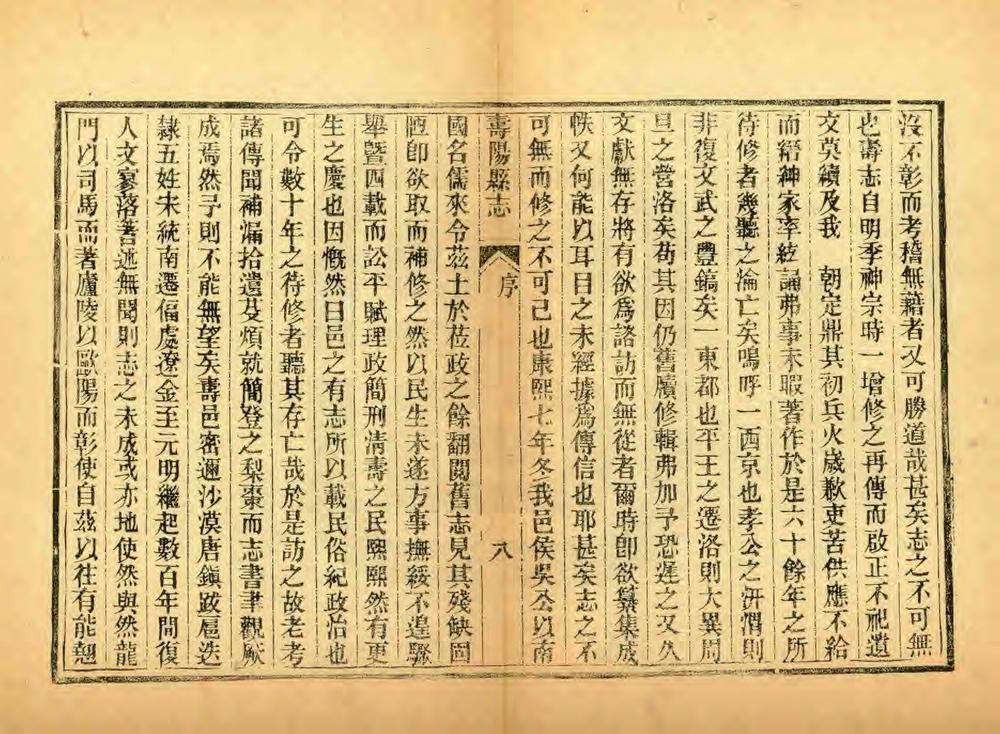 沒不彰而考稽無藉者又可勝道哉甚矣志之不可無
也壽志自明季神宗時一增修之再傳而啟正不祀遺
文莫續及我　朝定鼎其初兵火歲歉吏苦供應不給
而縉紳家率絃誦弗事未暇著作於是六十餘年之所
待修者幾聽之淪亡矣嗚呼一西京也孝公之汧渭則
非復文武之豐鎬矣一東都也平王之遷洛則大異周
旦之營洛矣苟其因仍舊牘修輯弗加予恐遲之又久
文獻無存將有欲爲諮訪而無從者爾時卽欲纂集成
帙又何能以耳目之未經據爲傳信也耶甚矣志之不
可無而修之不可已也康熙七年冬我邑侯吳公以南
壽陽縣志
序
八
國名儒來令茲土於莅政之餘翻閱舊志見其殘缺固
陋卽欲取而補修之然以民生未遂方事撫綏不遑驟
舉暨四載而訟平賦理政簡刑淸壽之民熙熙然有更
生之慶也因慨然曰邑之有志所以載民俗紀政治也
可令數十年之待修者聽其存亡哉於是訪之故老考
諸傳聞補漏拾遺芟煩就簡登之梨棗而志書聿觀厥
成焉然予則不能無望矣壽邑密邇沙漠唐鎭跋扈迭
隸五姓宋統南遷偪處遼金至元明繼起數百年間復
人文寥落著述無聞則志之未成或亦地使然與然龍
門以司馬而著廬陵以歐陽而彰使自茲以往有能翹